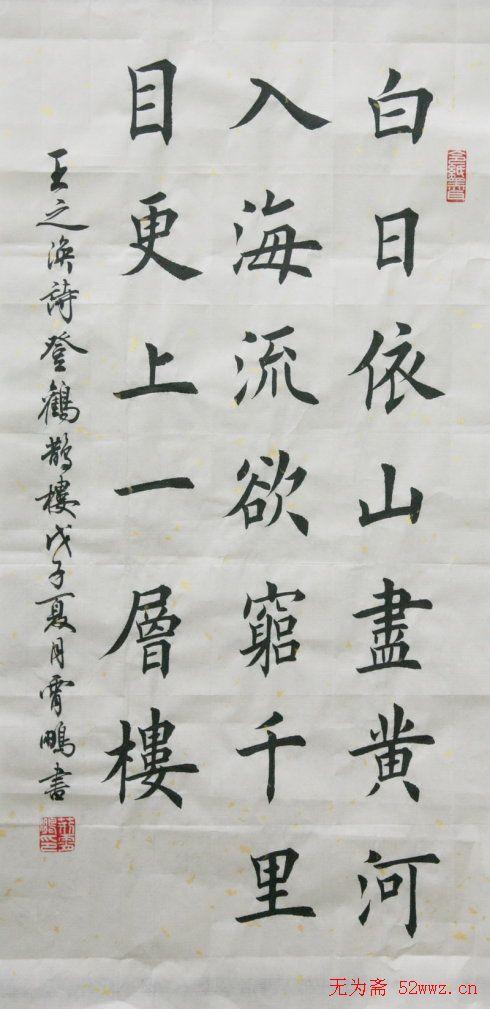 白日依山盡黄河
入海流欲窮千里
目更上一層樓
王之渙詩登鸛鵲樓戊子夏月霄鵬書
无为斋 52wwz.cn